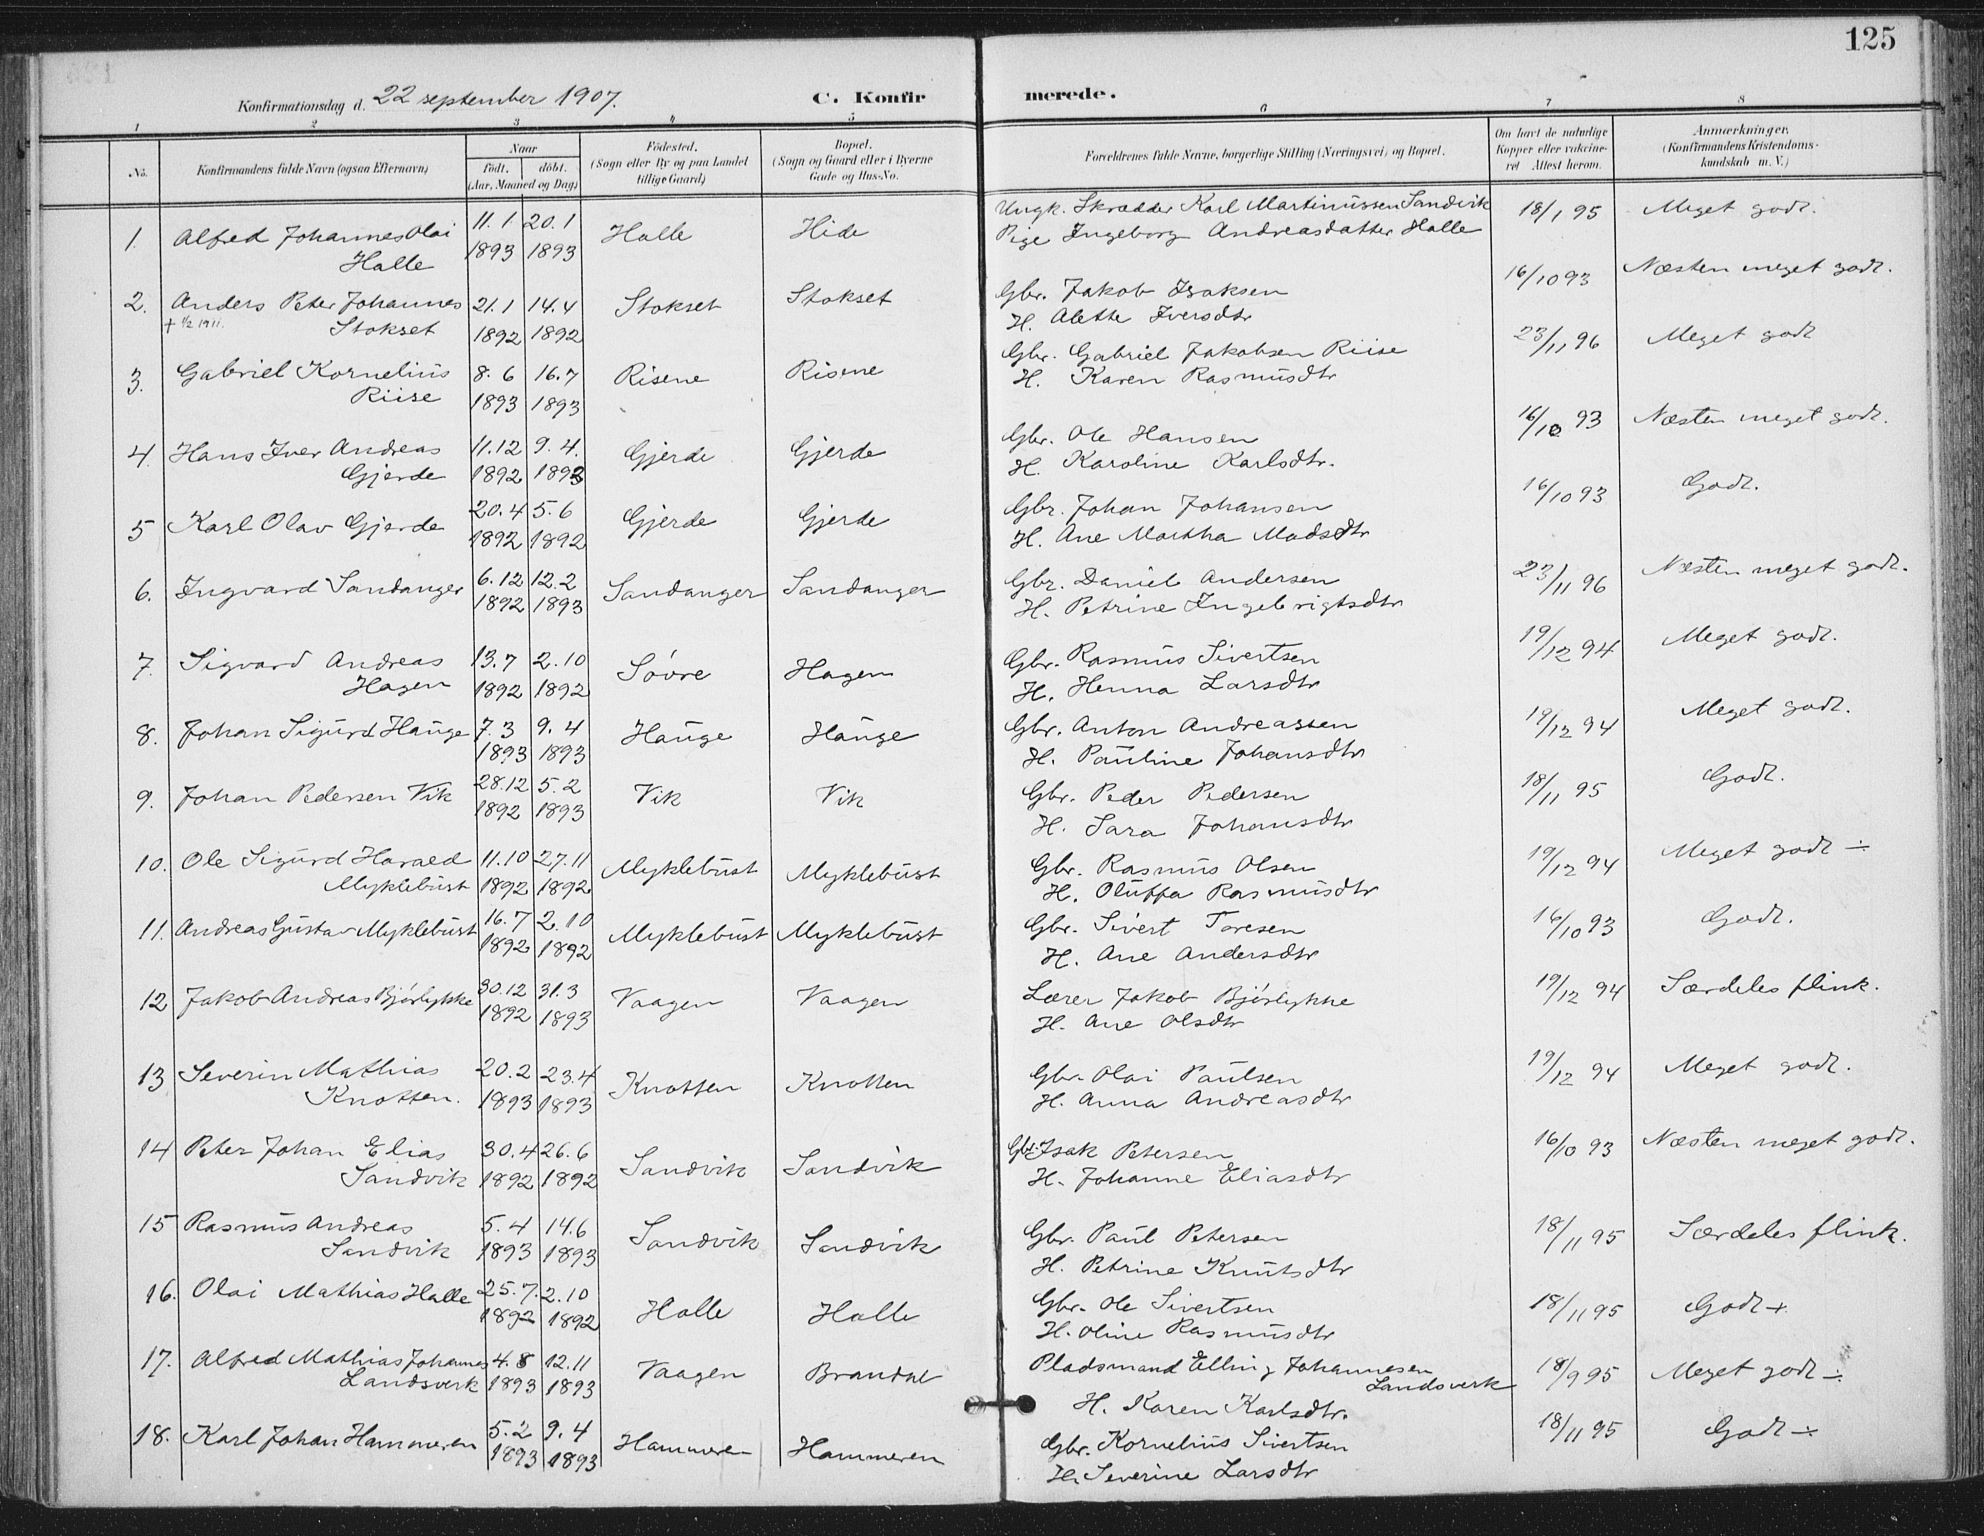 125
Konfirmationsdag d. 22 september 1907.
C. Konfirmerede.
1 2 3 4 5 6 7 8
No.
Konfirmandens fulde Navn (ogsaa Efternavn)
Naar
født. døbt.
(Aar, Maaned og Dag)
Fødested.
(Sogn eller By og paa Landet
tillige Gaard)
Bopæl.
(Sogn og Gaard eller i Byerne
Gade og Hus-No.
Forældrenes fulde Navne, borgerlige Stilling (Næringsvei) og Bopæl.
Om havt de naturlige
Kopper eller vakcine-
ret Attest herom.
Anmærkninger.
(Konfirmandens Kristendoms-
kundskab m. V.)
1. Alfred Johannes Olai 11.1 20.1 Halle Hide Ungk. Skrædder Karl Martinussen Sandvik 18/1 95 Meget godt.
Halle 1893 1893 Pige Ingeborg Andreasdatter Halle
2. Anders Peter Johannes 21.1 14.4 Stokset Stokset Gbr. Jakob Isaksen 16/10 93 Næsten meget godt.
† 1/2 1911. Stokset 1892 1892 H. Alette Iversdtr
3. Gabriel Kornelius 8.6 16.7 Risene Risene Gbr. Gabriel Jakobsen Riise 23/11 96 Meget godt
Riise 1893 1893 H. Karen Rasmusdtr
4. Hans Iver Andreas 11.12 9.4. Gjerde Gjerde Gbr. Ole Hansen 16/10 93 Næsten meget godt.
Gjerde 1892 1893 H. Karoline Karlsdtr.
5 Karl Olav Gjerde 20.4 5.6 Gjerde Gjerde Gbr. Johan Johansen 16/10 93 Godt.
1892 1892 H. Ane Martha Madsdtr
6. Ingvard Sandanger 6.12 12.2 Sandanger Sandanger Gbr. Daniel Andersen 23/11 96 Næsten meget godt.
1892 1893 H. Petrine Ingebrigtsdtr
7. Sigvard Andreas 13.7 2.10 Søvre Hagen Gbr. Rasmus Sivertsen 19/12 94 Meget godt.
Hagen 1892 1892 H. Henna Larsdtr
8. Johan Sigurd Hauge 7.3 9.4 Hauge Hauge Gbr. Anton Andreassen 19/12 94 Meget godt.
1893 1893 H. Pauline Johansdtr
9. Johan Pedersen Vik 28.12 5.2 Vik Vik Gbr. Peder Pedersen 18/11 95 Godt.
1892 1893 H. Sara Johansdtr
10. Ole Sigurd Harald 11.10 27.11 Myklebust Myklebust Gbr. Rasmus Olsen 19/12 94 Meget godt ÷
Myklebust 1892 1892 H. Oluffa Rasmusdtr
11. Andreas Gustav Myklebust 16.7 2.10 Myklebust Myklebust Gbr. Sivert Toresen 16/10 93 Godt.
1892 1892 H. Ane Andersdtr
12 Jakob Andreas Bjørlykke 30.12 31.3 Vaagen Vaagen Lærer Jakob Bjørlykke 19/12 94 Særdeles flink.
1892 1893 H. Ane Olsdtr
13 Severin Mathias 20.2 23.4 Knotten Knotten Gbr. Olai Paulsen 19/12 94 Meget godt.
Knotten. 1893 1893 H. Anna Andreasdtr
14 Peter Johan Elias 30.4 26.6 Sandvik Sandvik Gbr. Isak Petersen 16/10 93 Næsten meget godt.
Sandvik 1892 1892 H. Johanne Eliasdtr
15 Rasmus Andreas 5.4 14.6 Sandvik Sandvik Gbr. Paul Petersen 18/11 95 Særdeles flink.
Sandvik 1893 1893 H. Petrine Knutsdtr
16. Olai Mathias Halle 25.7. 2.10 Halle Halle Gbr. Ole Sivertsen 18/11 95 Godt +
1892 1892 H. Oline Rasmusdtr
17. Alfred Mathias Johannes 4.8 12.11 Vaagen Brandal Pladsmand Elling Johannesen 18/9 95 Meget godt ÷
Landsverk 1893 1893 Landsverk
H. Karen Karlsdtr.
18. Karl Johan Hammeren 5.2 9.4 Hammeren Hammeren Gbr. Kornelius Sivertsen 18/11 95 Godt ÷
1893 1893 H. Severine Larsdtr